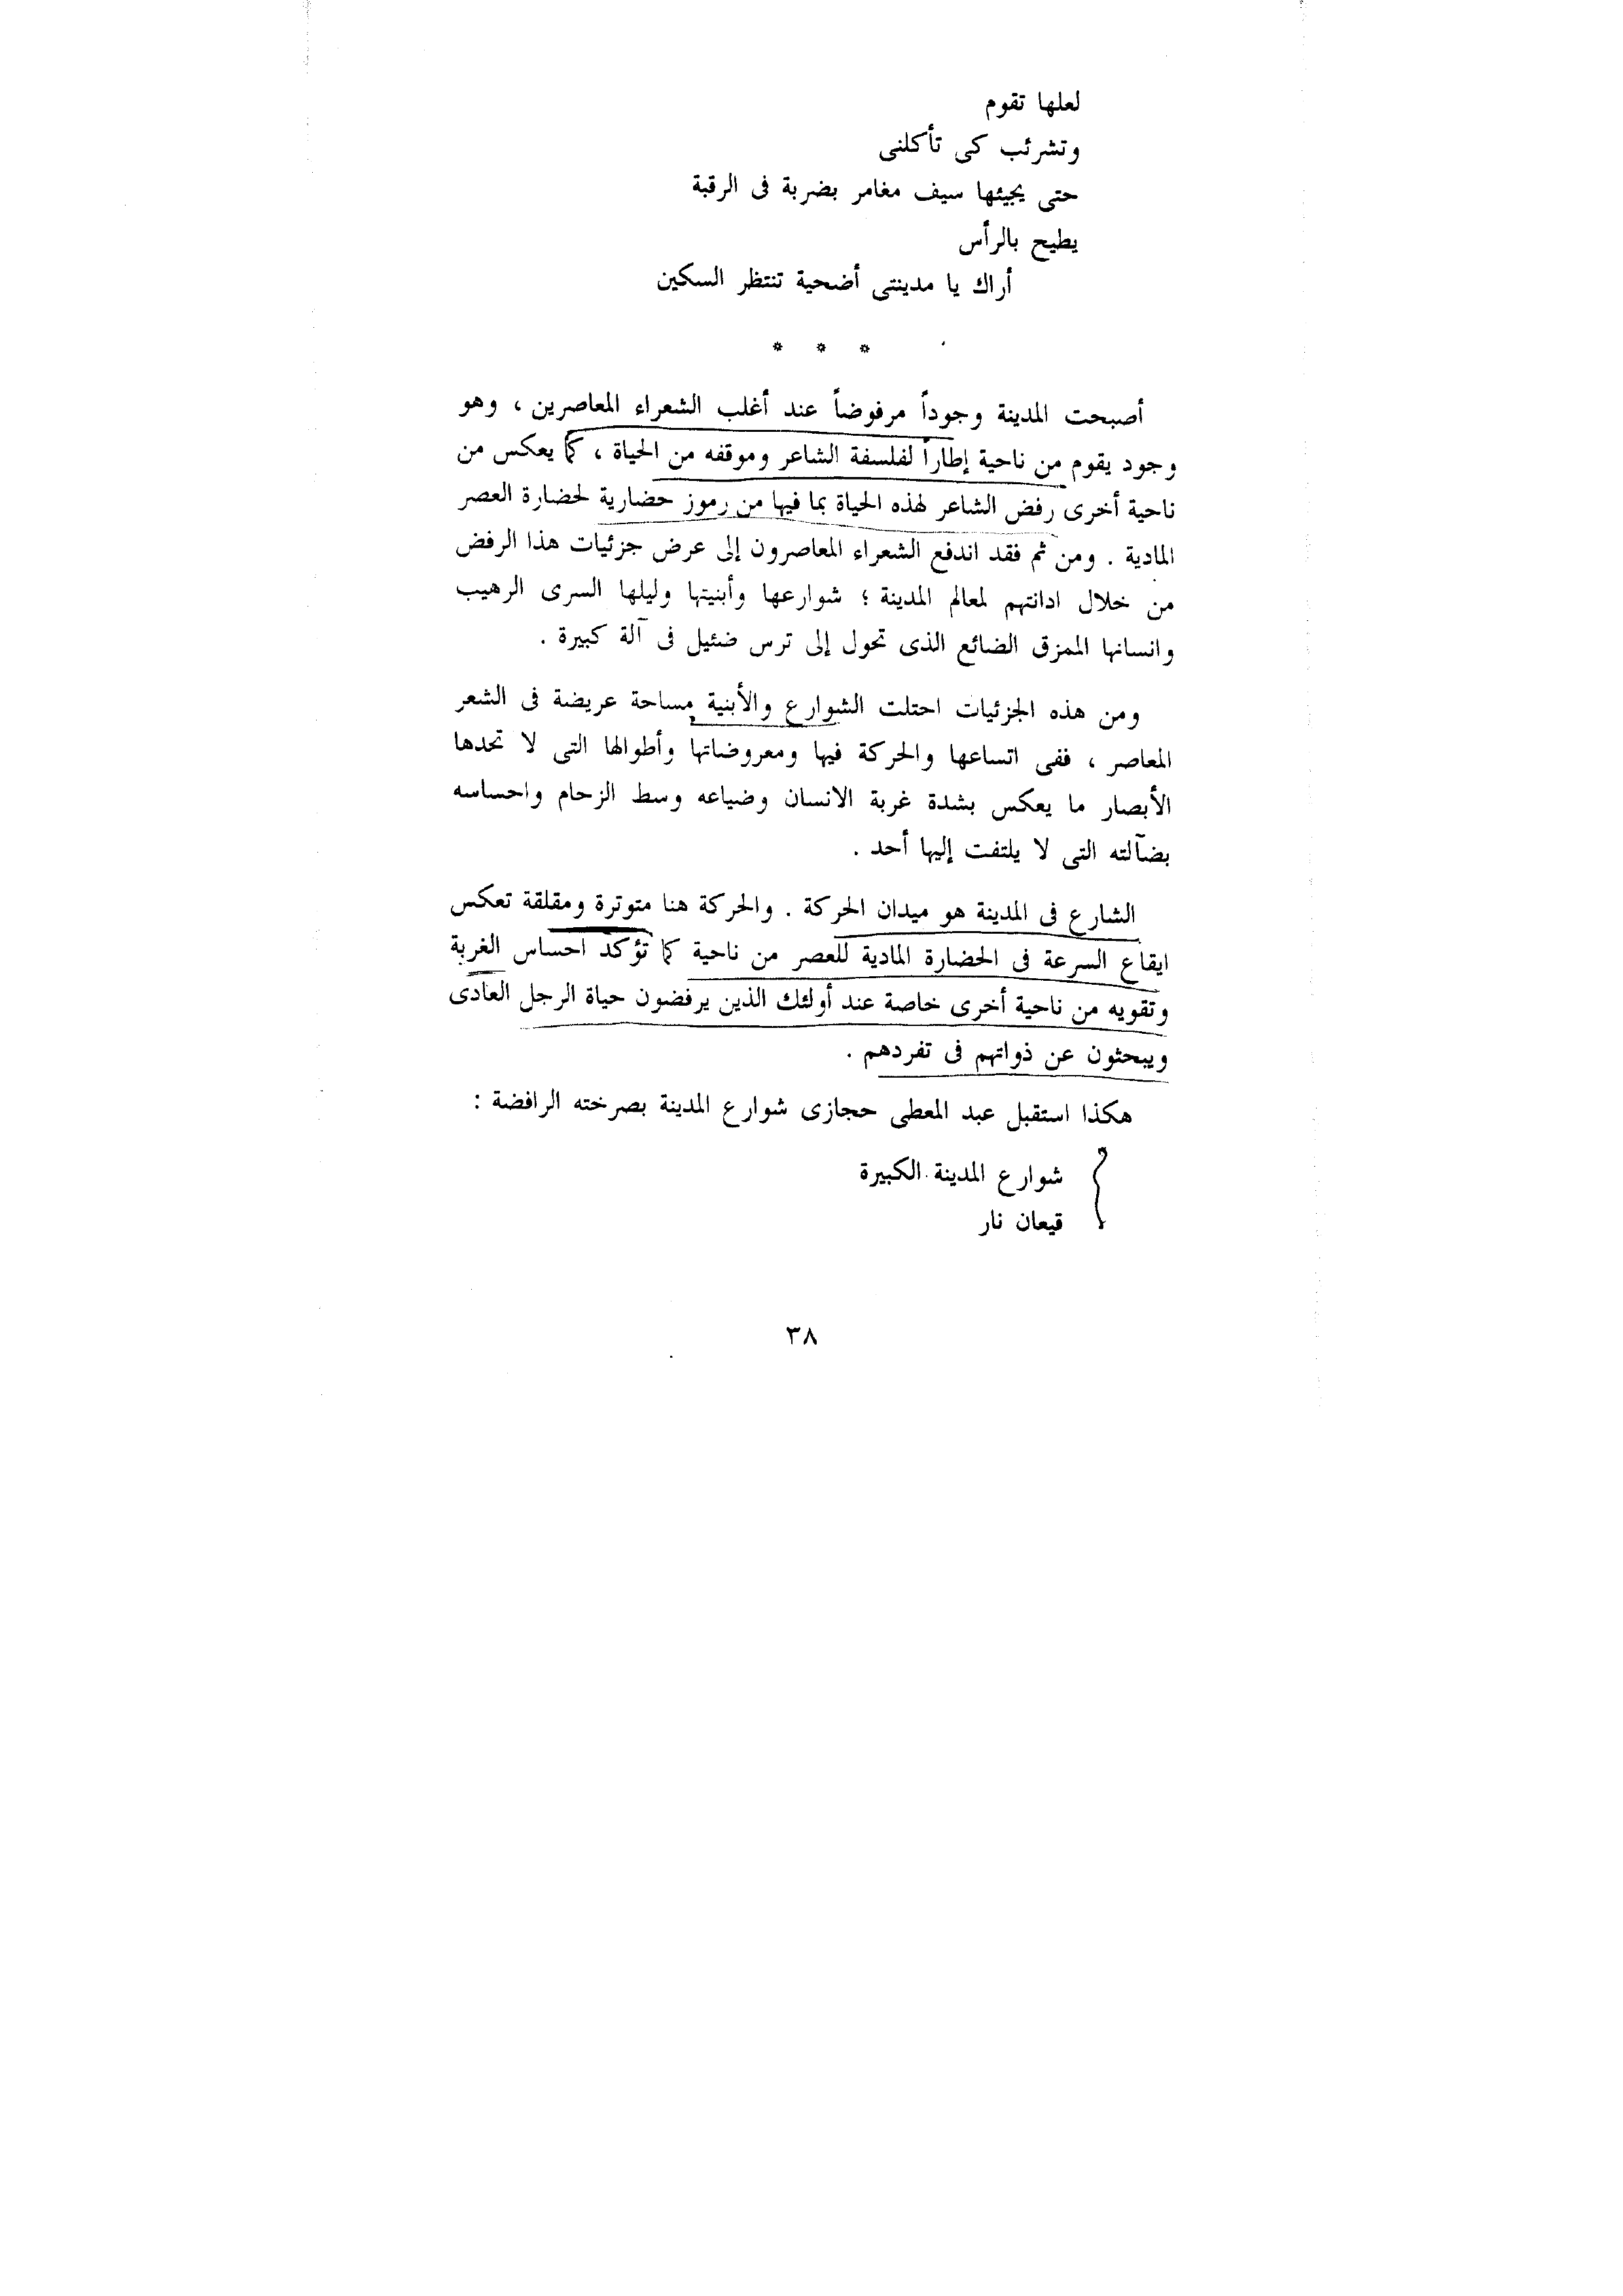 لعلها تقوم
وتشرئب كى تأكلنى
حتى يجيئها سيف مغامر بضربة فى الرقبة
يطيح بالرأس
أراك يا مدينتى أضحية تنتظر السكين
* * *
أصبحت المدينة وجوداً مرفوضاً عند أغلب الشعراء المعاصرين ، وهو
وجود يقوم من ناحية إطاراً لفلسفة الشاعر وموقفه من الحياة ، كما يعكس من
ناحية أخرى رفض الشاعر لهذه الحياة بما فيها من رموز حضارية لحضارة العصر
المادية . ومن ثم فقد اندفع الشعراء المعاصرون إلى عرض جزئيات هذا الرفض
من خلال ادانتهم لمعالم المدينة ؛ شوارعها وأبنيتها وليلها السرى الرهيب
وانسانها الممزق الضائع الذى تحول إلى ترس ضئيل فى آلة كبيرة .
ومن هذه الجزئيات احتلت الشوارع والأبنية مساحة عريضة فى الشعر
المعاصر ، ففى اتساعها والحركة فيها ومعروضاتها وأطوالها التى لا تحدها
الأبصار ما يعكس بشدة غربة الانسان وضياعه وسط الزحام واحساسه
بضآلته التى لا يلتفت إليها أحد .
الشارع فى المدينة هو ميدان الحركة . والحركة هنا متوترة ومقلقة تعكس
ايقاع السرعة فى الحضارة المادية للعصر من ناحية كما تؤكد احساس الغربة
وتقويه من ناحية أخرى خاصة عند أولئك الذين يرفضون حياة الرجل العادى
ويبحثون عن ذواتهم فى تفردهم .
هكذا استقبل عبد المعطى حجازى شوارع المدينة بصرخته الرافضة :
شوارع المدينة الكبيرة
قيعان نار
٣٨